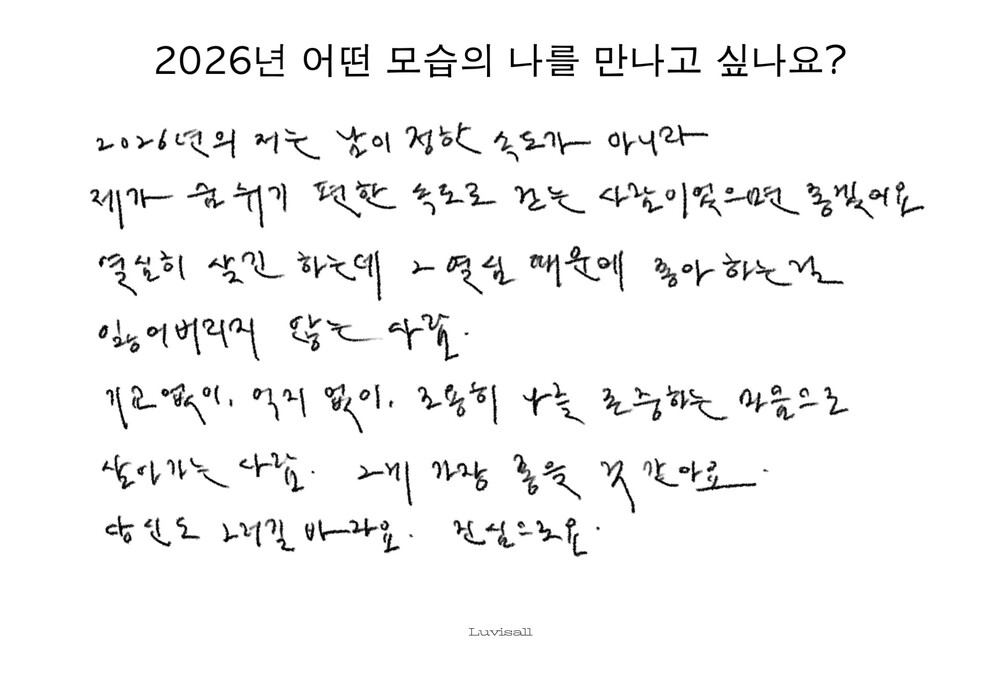 2026년 어떤 모습의 나를 만나고 싶나요?
2026년의 저는 남이 정한 속도가 아니라
제가 숨 쉬기 편한 속도로 걷는 사람이었으면 좋겠어요
열심히 살긴 하는데 그 열심 때문에 좋아 하는걸
잃어버리지 않는 사람.
비교 없이, 억지 없이, 조용히 나를 존중하는 마음으로
살아가는 사람. 그게 가장 좋을 것 같아요.
당신도 그러길 바라요. 진심으로요.
Luvisall